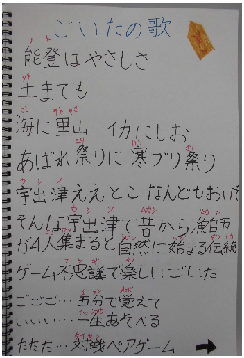 ごいたの歌
能登はやさしさ
土までも
海に里山 イカにしお
あばれ祭りに 寒ブリ祭り
宇出津ええとこ なんどもおいで
そんな宇出津で 昔から
が4人集まると自然に始まる伝統
ゲーム不思議で楽しいごいた
ごごご…5分で覚えて
いいい…一生あそべる
たたた…対戦ペアゲーム